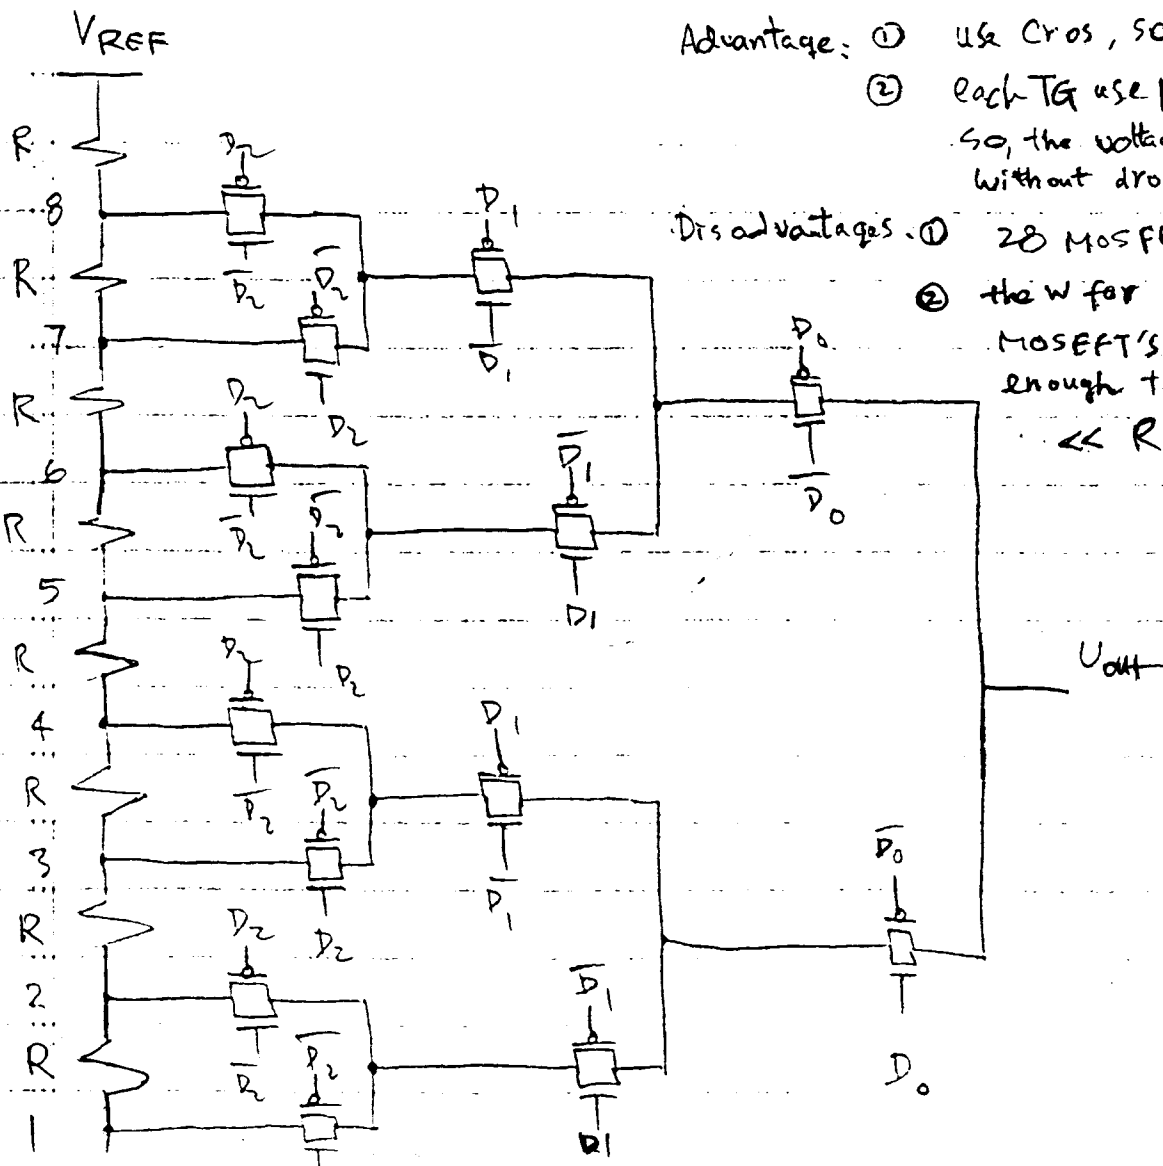 VREF
Advantage: ① use Cros, so
② each TG use
so, the
without dro
Disadvantages. ① 28 MOSF
② the W for
MOSEFT'S
enough t
<< R
R
8
R
7
R
6
R
5
R
4
R
3
R
2
R
1
D2
D̅2
D̅2
D2
D2
D̅2
D̅2
D2
D2
D̅2
D̅2
D2
D2
D̅2
D̅2
D1
D̅1
D̅1
D1
D1
D̅1
D̅1
D1
D0
D̅0
D̅0
D0
Uout